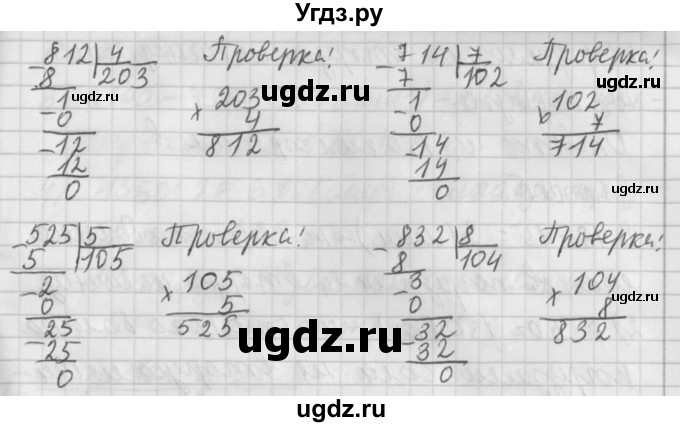 Угдз.ру
-812|4 Проверка!
8 |203
-1 ×203
0 4
-12 812
12
0
-714|7 Проверка!
7 |102
-1 ×102
0 7
-14 714
14
0
-525|5 Проверка!
5 |105
-2 ×105
0 5
-25 525
25
0
-832|8 Проверка!
8 |104
-3 ×104
0 8
-32 832
32
0
ugdz.ru
ugdz.ru
ugdz.ru
ugdz.ru
ugdz.ru
ugdz.ru
ugdz.ru
ugdz.ru